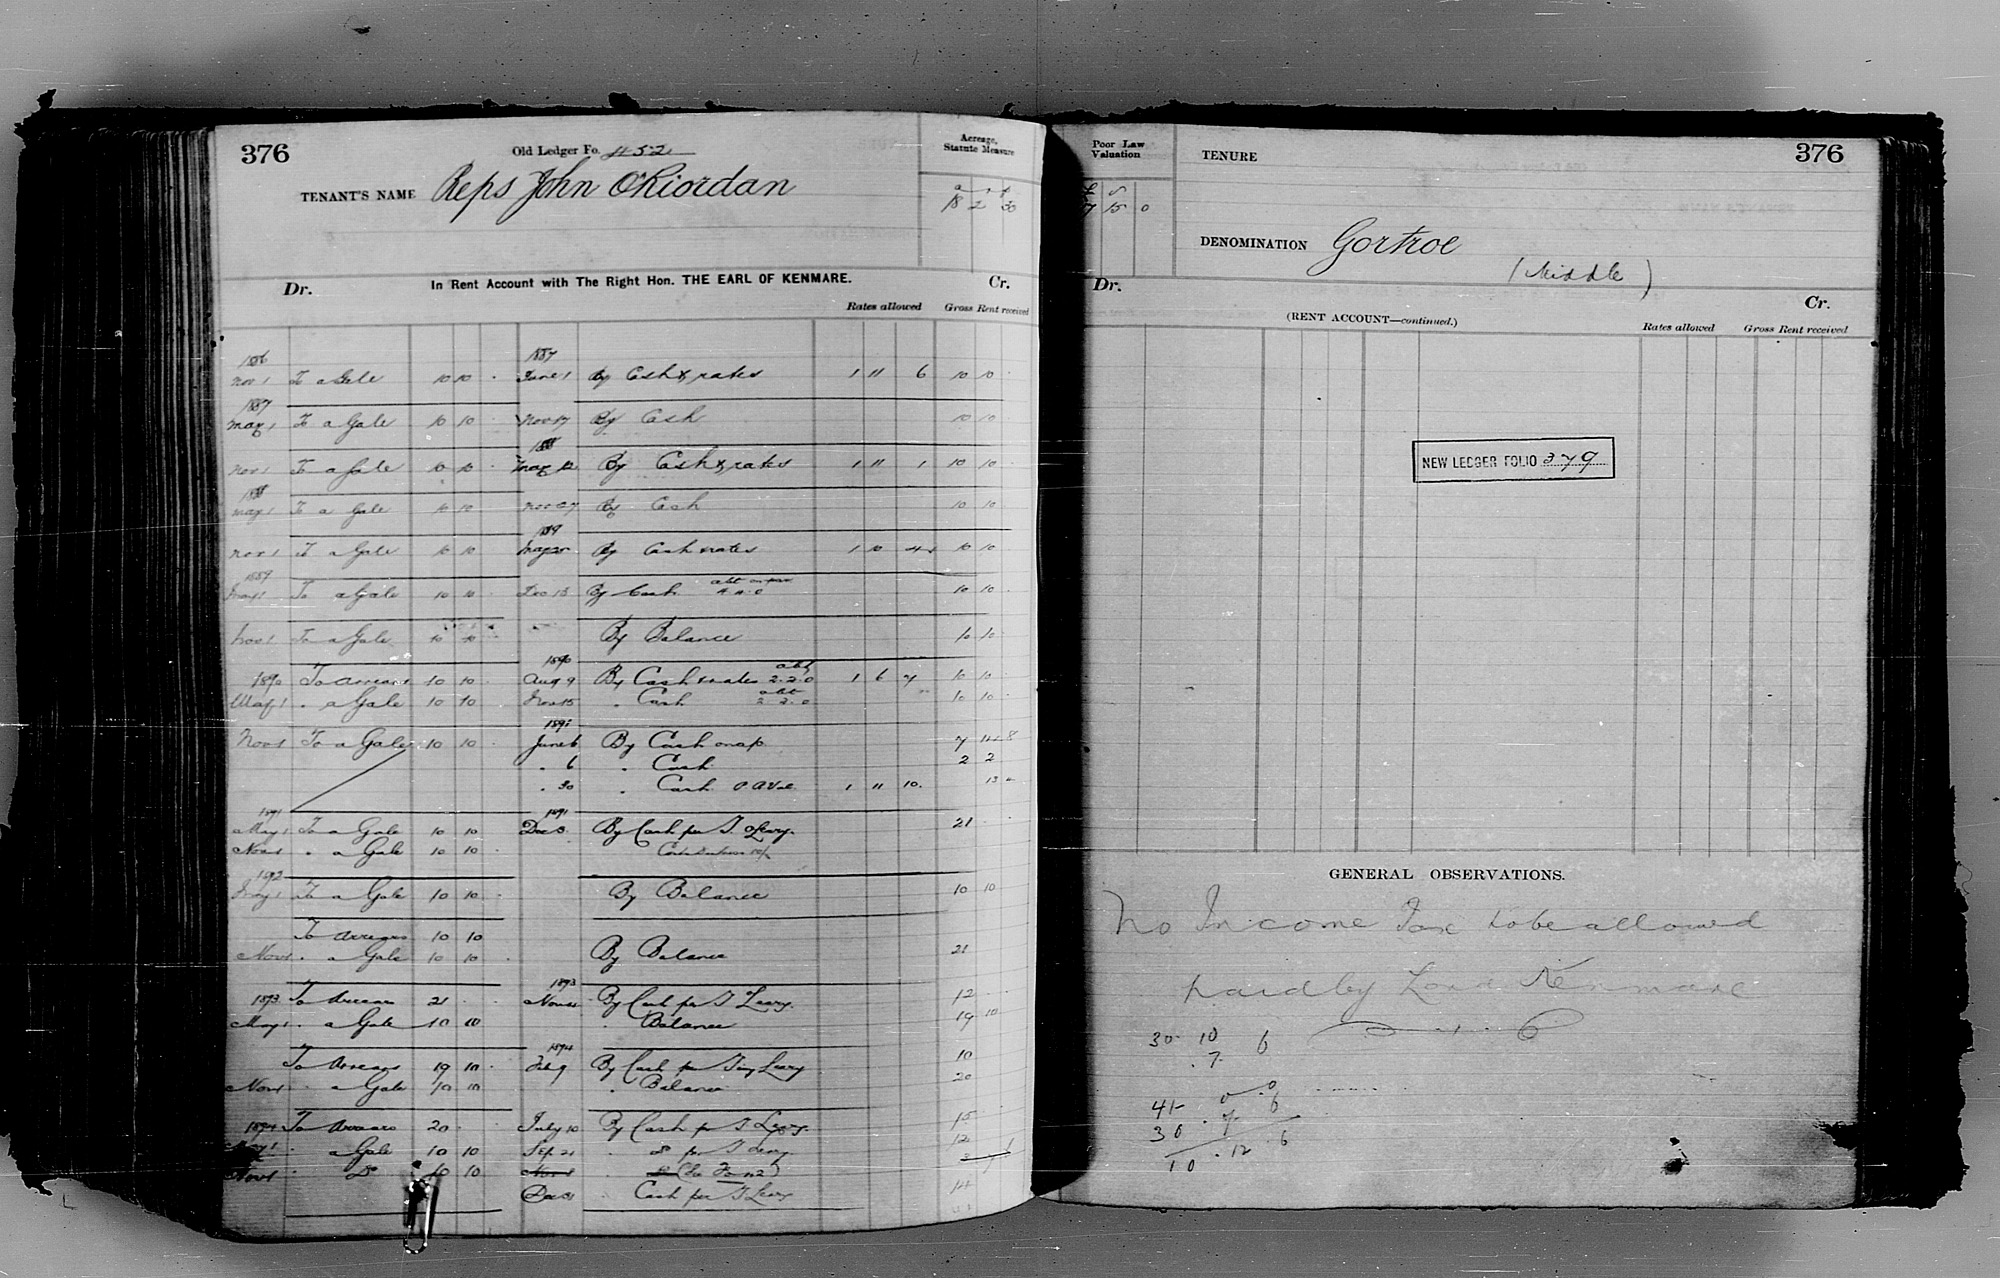 376
Old Ledger Fo. 452
Acreage, Statute Measure
TENANT'S NAME Reps John O'Riordan
a r p
18 2 30
In Rent Account with The Right Hon. THE EARL OF KENMARE.
Dr. Cr.
Rates allowed Gross Rent received
1886 1887
Nov 1 To a Gale 10 10 · June 1 By Cash & rates 1 11 6 10 10
1887
May 1 To a Gale 10 10 · Nov 17 By Cash 10 10
1888
Nov 1 To a Gale 10 10 · May 12 By Cash & rates 1 11 1 10 10
1888
May 1 To a Gale 10 10 Nov 27 By Cash 10 10
1889
Nov 1 To a Gale 10 10 · May By Cash & rates 1 10 10 10
1889
May 1 To a Gale 10 10 · Dec 13 By Cash abt 10 10
Nov 1 To a Gale 10 10 By Balance 10 10
1890
1890 To arrears 10 10 · Aug 9 By Cash & rates abt 2.2.0 1 6 7 10 10
May 1 " a Gale 10 10 Nov 15 " Cash abt 2 2 0 10 10
1891
Nov 1 To a Gale 10 10 · June 6 By Cash on a/c 7 14 8
" 6 " Cash 2 2
" 30 " Cash 1 11 10 13 4
1891 1891
May 1 To a Gale 10 10 Dec 3 By Cash per T. Leary. 21
Nov 1 " a Gale 10 10
1892
May 1 To a Gale 10 10 · By Balance 10 10
To arrears 10 10
Nov 1 " a Gale 10 10 · By Balance 21
1893
1893 To Arrears 21 Nov By Cash per T Leary. 12
May 1 " a Gale 10 10 " Balance 19 10
1894
To Arrears 19 10 · Feb 9 By Cash per Leary 10
Nov 1 " a Gale 10 10 " Balance 20
1894 To Arrears 20 · July 10 By Cash pr T Leary. 15
May 1 " a Gale 10 10 Sep. 21 " do pr T Leary 12
Nov 1 " Do 10 10
Dec 31 " Cash per T Leary 14
Poor Law Valuation
£ s
17 15 0
TENURE
376
DENOMINATION Gortroe
(Middle)
Dr. Cr.
(RENT ACCOUNT—continued.)
Rates allowed Gross Rent received
NEW LEDGER FOLIO 379
GENERAL OBSERVATIONS.
No Income Tax to be allowed
paid by Lord Kenmare
30 · 10 6
. 7. 6
41 - 0 . 0
30 . 7 6
10 . 12 . 6